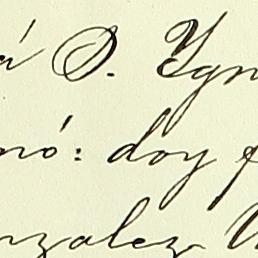 á D. Ygn
nó: doy f
nzalez